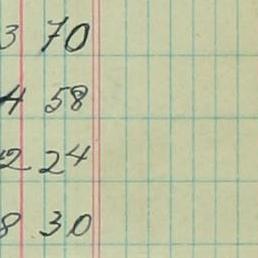 3 70
4 58
2 24
8 30